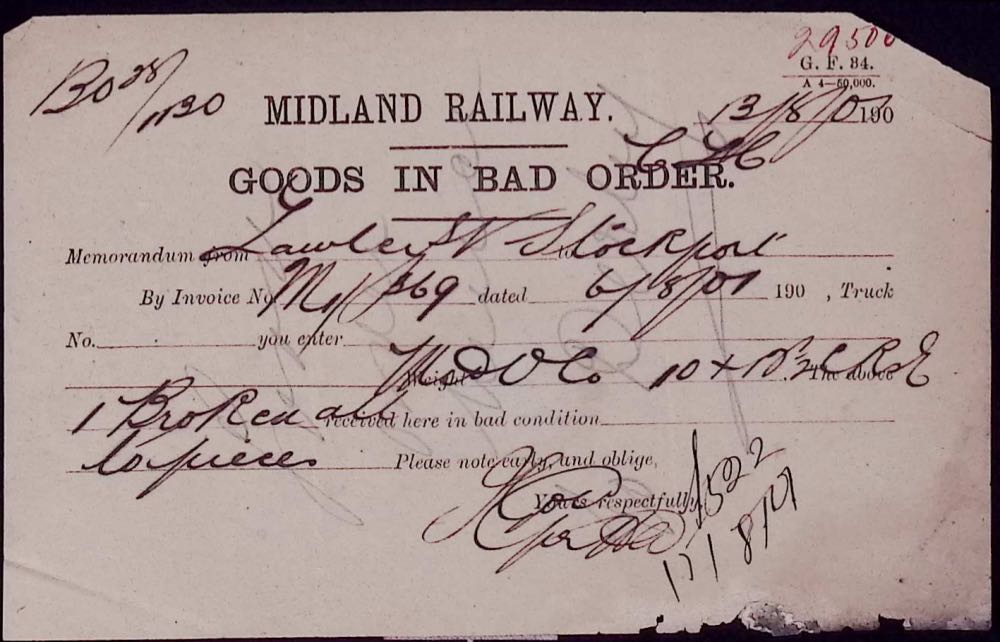 29500
G. F. 84.
A 4—50,000.
BO 28/1130
MIDLAND RAILWAY.
13/8/01 190
GOODS IN BAD ORDER.
Memorandum from Lawley St to Stockport
By Invoice No. M/1 369 dated 6/8/01 190 , Truck
No. you enter
Weight Co 10 The above
1 Broken all received here in bad condition
to pieces Please note early, and oblige,
Yours respectfully,
1522
17/8/01